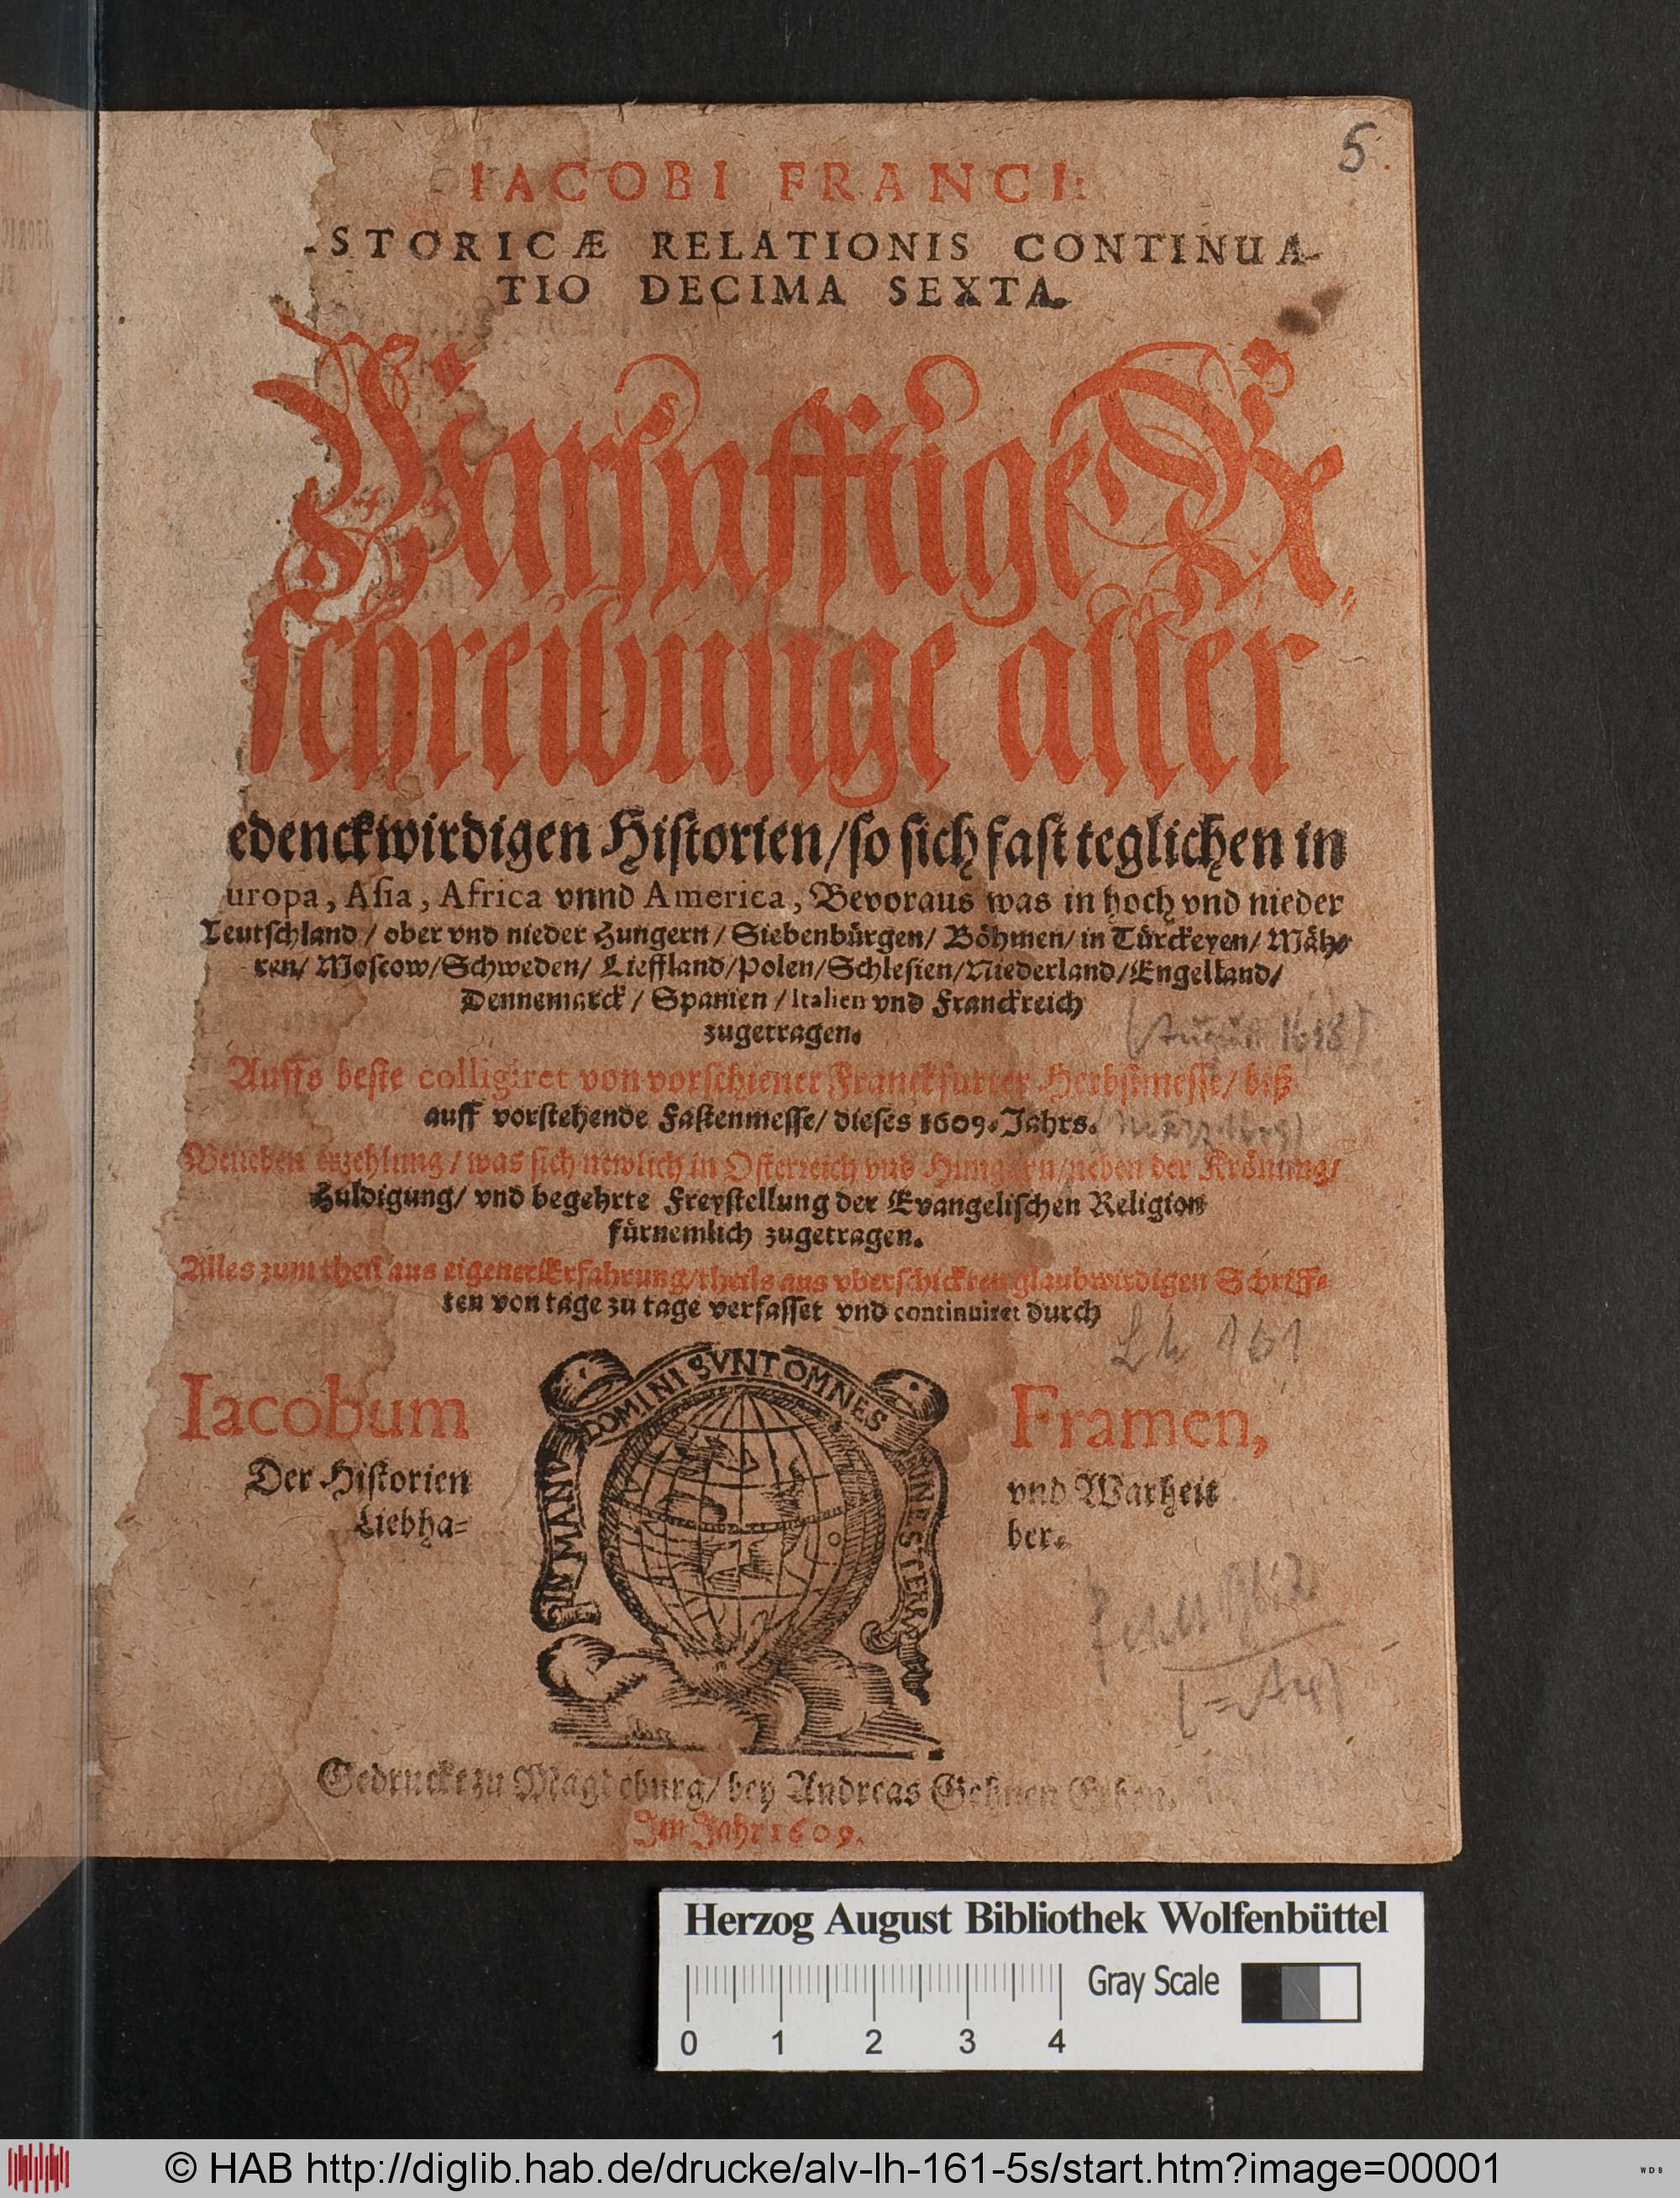 5.
IACOBI FRANCI:
STORICÆ RELATIONIS CONTINUA-
TIO DECIMA SEXTA.
Warhafftige Be-
schreibunge aller
edenckwirdigen Historien/so sich fast teglichen in
uropa, Asia, Africa vnnd America, Bevoraus was in hoch vnd nieder
Teutschland/ ober vnd nieder Hungern/ Siebenbürgen/ Böhmen/ in Türckeyen/ Mäh-
ren/ Moscow/Schweden/ Lieffland/Polen/Schlesien/Niederland/Engelland/
Dennemarck/ Spanien/Italien vnd Franckreich
zugetragen.
(August 1608)
Auffs beste colligiret von vorschiener Franckfurter Herbstmesse/ biß
auff vorstehende Fastenmesse/ dieses 1609. Jahrs.
(März 1609)
erzehlung/ was sich newlich in Osterreich vnd Hungern/neben der Krönung/
Huldigung/ vnd begehrte Freystellung der Evangelischen Religion
fürnemlich zugetragen.
Alles zum theil aus eigener Erfahrung/theils aus vberschickten glaubwirdigen Schriff-
ten von tage zu tage verfasset vnd continuiret durch
Lh 161
Iacobum Framen,
Der Historien vnd Warheit
Liebha= ber.
IN MANV DOMINI SVNT OMNES FINES TERRÆ
Gedruckt zu Magdeburg/ bey Andreas Gehnen Erben.
Im Jahr 1609.
Herzog August Bibliothek Wolfenbüttel
Gray Scale
0 1 2 3 4
© HAB http://diglib.hab.de/drucke/alv-lh-161-5s/start.htm?image=00001
WDB